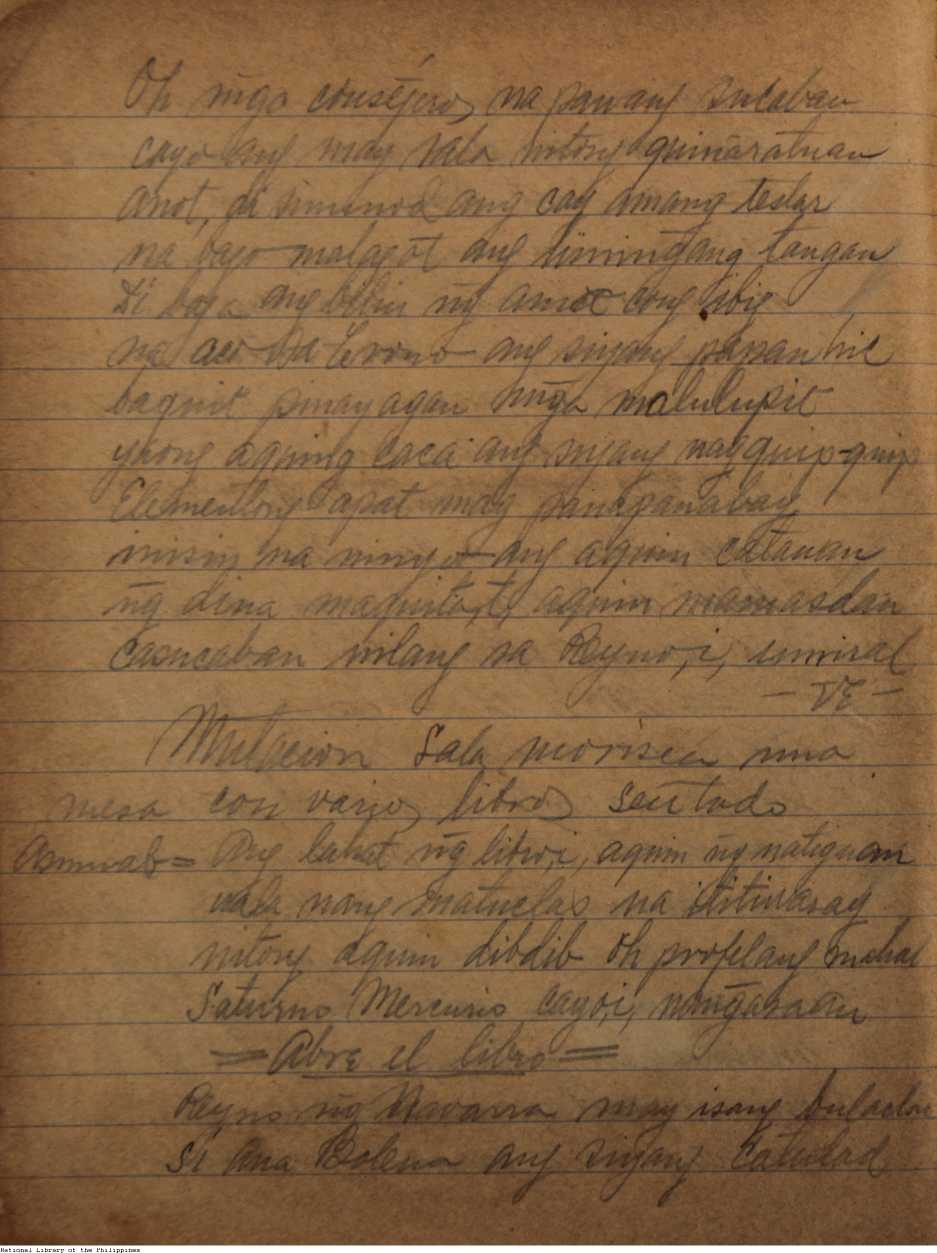 Oh mg̃a consejeros na pawang sucaban
cayo ang may sala nitong quinaratnan
anot, di sinunod ang cay amang
na bago malagot ang tangan
Di baga ang bilin ng̃ amat cong ibig
na aco sa trono ang siyang papanhic
baquit pinayagan mg̃a malulupit
yaong aquing caca ang siyang nagquip-quip
Elementong apat mag panapanabay
inisin na ninyo ang aquin catauan
ng̃ dina maquita,t, aquin mamasdan
casucaban nilang sa Reyno,i, umiral
— VE —
Mutacion Sala morisca una
mesa con varios libros sentado
= Ang lahat ng̃ libro,i, aquin ng̃ natignan
uala nang matuclas na
nitong aquin dibdib Oh profetang mahal
Saturno Mercurio cayo,i,
= Abre el libro =
Reyno ng̃ Navarra may isang bulaclac
Si Ana Bolena ang siyang catulad
National Library of the Philippines